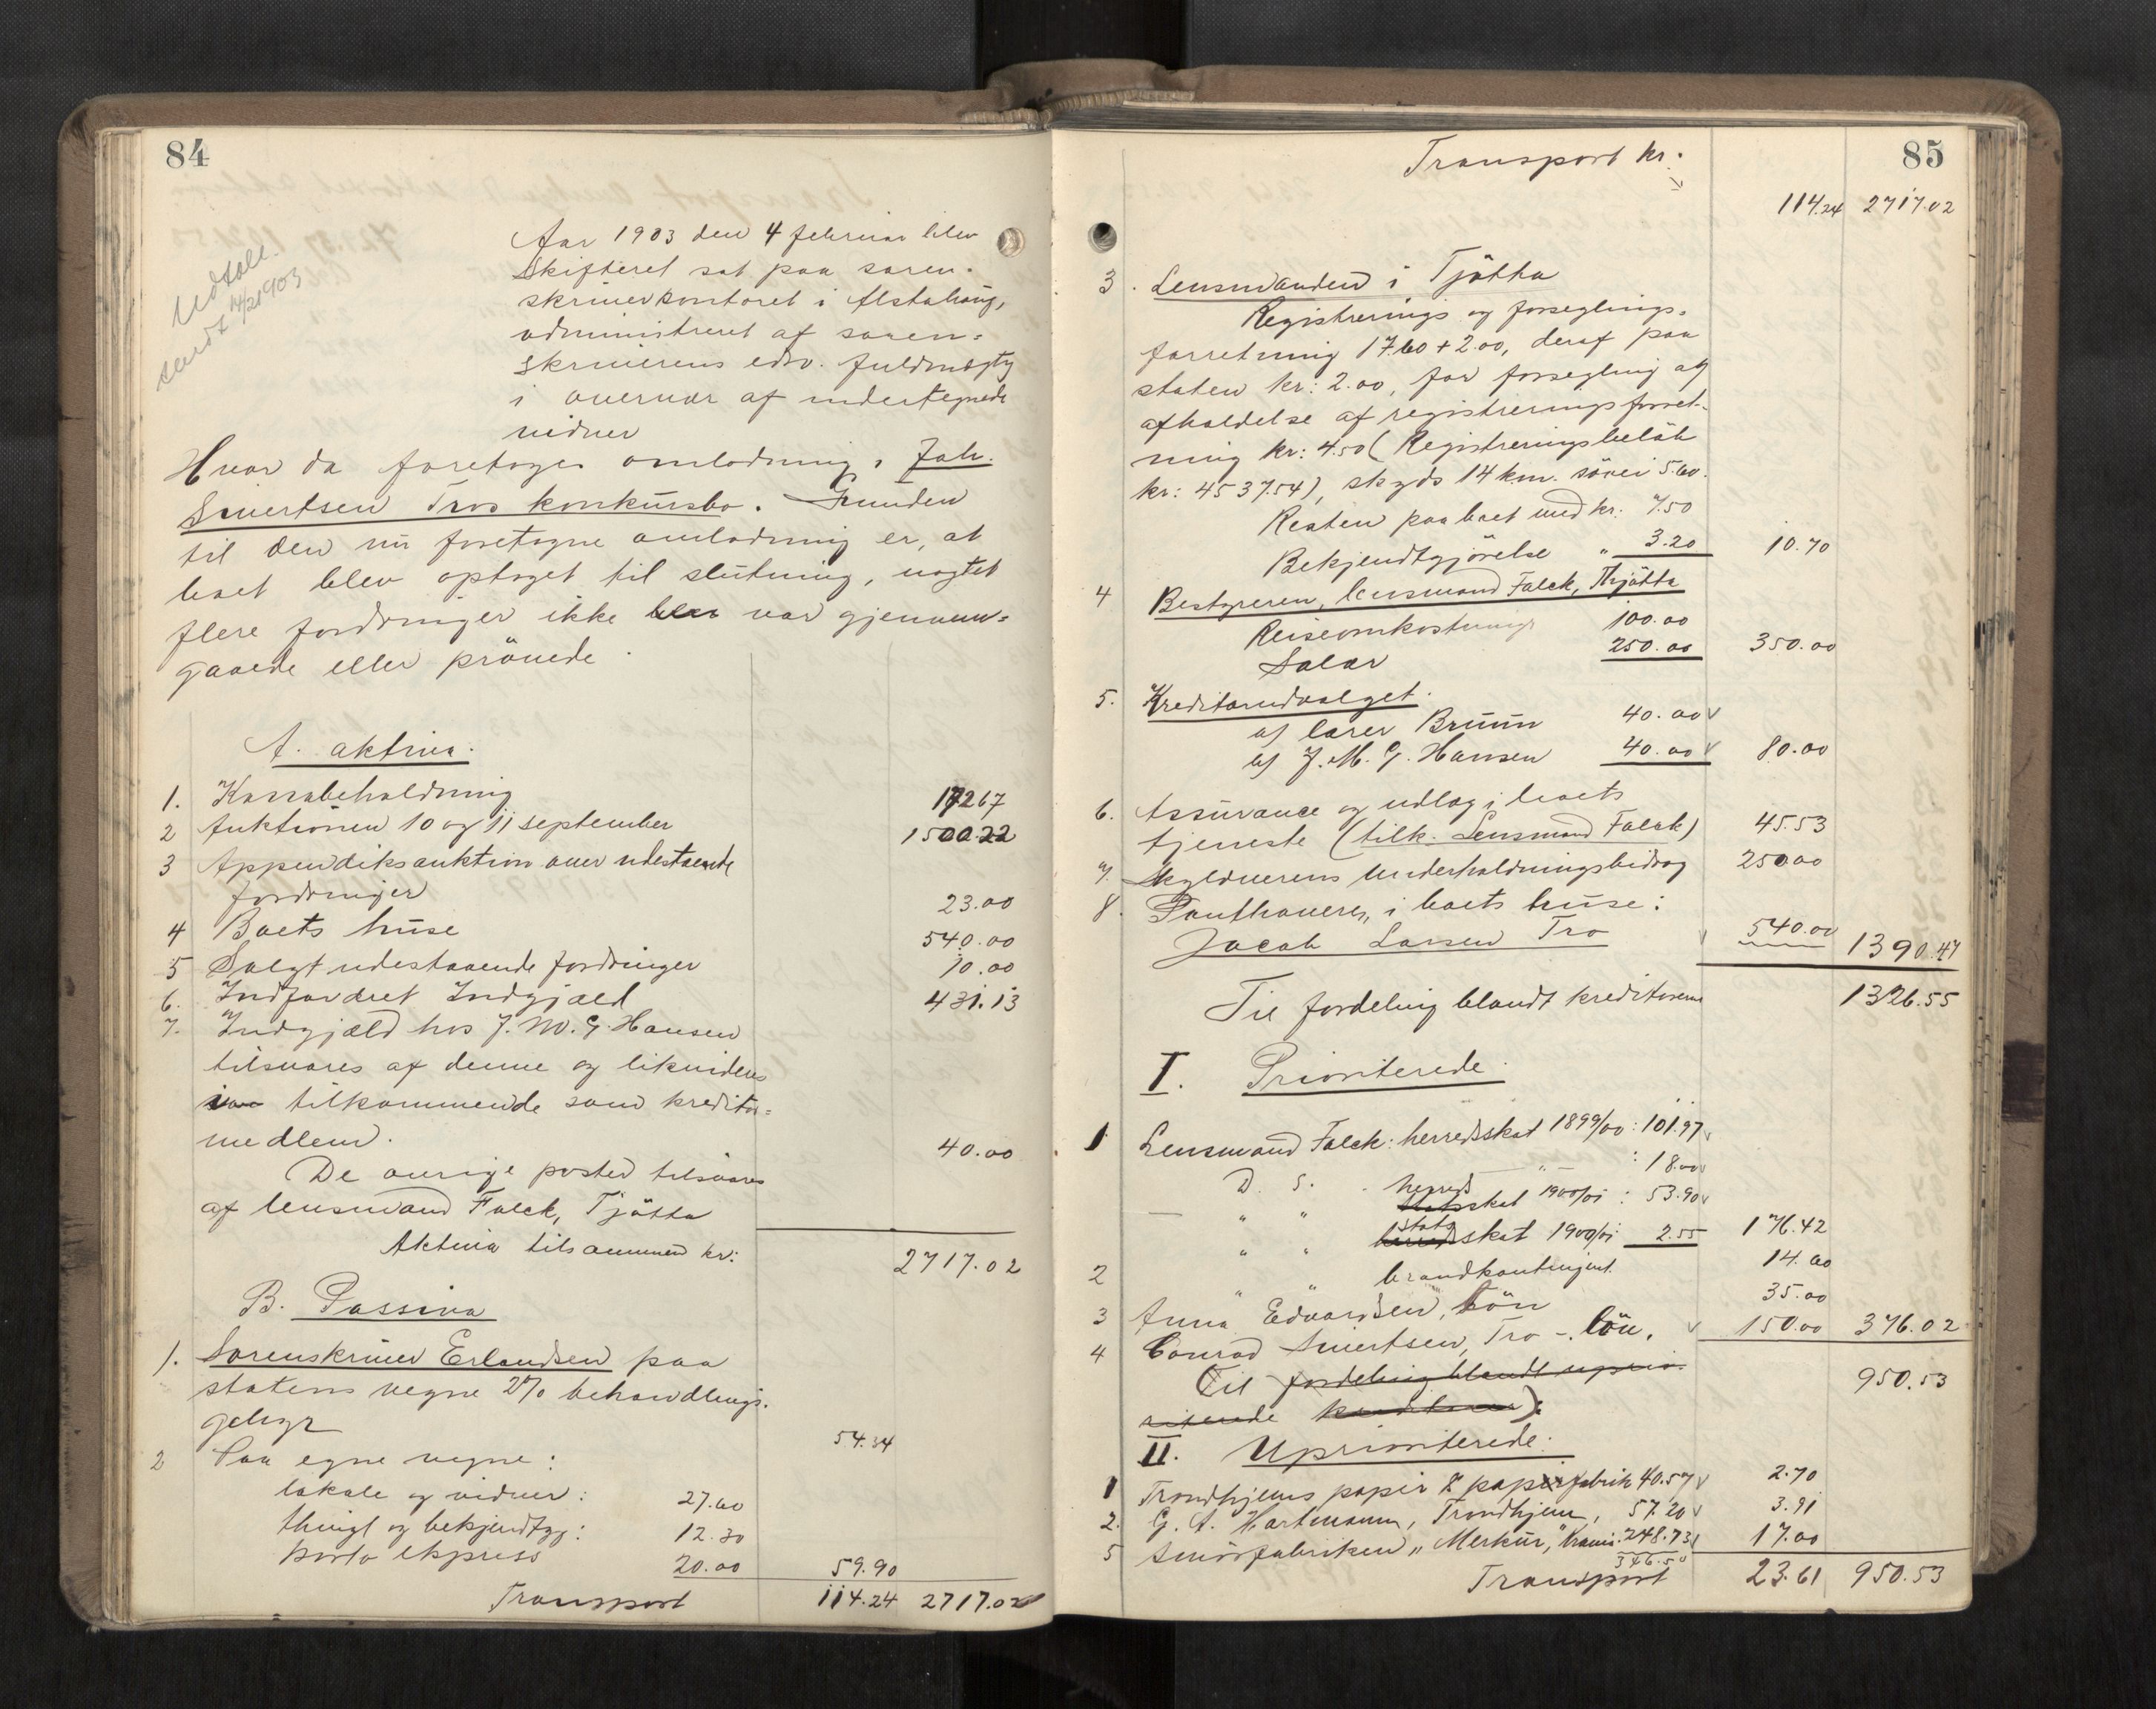 84
Udtall.
sendt 14/2 1903
Aar 1903 den 4 februar blev
Skifteret sat paa soren-
skriverkontoret i Alstahaug,
administreret af soren-
skriverens edsv. fuldmægtig
i overvær af undertegnede
vidner
Hvor da foretoges omlodning i Joh.
Sivertsen Tros konkursbo. Grunden
til den nu foretagne omlodning er, at
boet blev optaget til slutning, uagtet
flere fordringer ikke blev var gjennem-
gaaede eller prövede.
A. aktiva.
1. Kassabeholdning 172 67
2 Auktionen 10 og 11 september 1500.22
3 Appendiksauktion over udestaaende
fordringer 23.00
4 Boets huse 540.00
5 Solgt udestaaende fordringer 10.00
6. Indfordret Indgjæld 431.13
7. Indgjæld hos J. M. G. Hansen
tilsvares af denne og likvideres
i tilkommende som kreditor-
medlem. 40.00
De övrige poster tilsvares
af lensmand Falck, Tjötta
Aktiva tilsammen kr: 2717.02
B. Passiva
1. Sorenskriver Erlandsen paa
statens vegne 2% behandlings-
gebyr 54.34
2 Paa egne vegne:
lokale og vidner: 27.60
thingl og bekjendtgj: 12.30
porto ekspress 20.00 59.90
Transport 114.24 2717.02
85
Transport kr:
114.24 2717.02
3. Lensmanden i Tjötta
Registrerings og forseglings-
forretning 17.60 + 2.00, deraf paa
staten kr: 2.00, for forsegling og
afholdelse af registreringsforret-
ning kr: 4.50 (Registreringsbelöb
kr: 4537.54), skyds 14 km. sövei 5.60.
Resten paa boet med kr. 7.50
Bekjendtgjörelse " 3.20 10.70
4 Bestyreren, lensmand Falck, Thjötta
Reiseomkostninger 100.00
Salær 250.00 350.00
5. Kreditorudvalget.
af lærer Bruun 40.00 v
af J. M. G. Hansen 40.00 v 80.00
6. Assurance og udlæg i boets
tjeneste (tilk. Lensmand Falck) 45.53
7. Skyldnerens Underholdningsbidrag 250.00
8. Panthavere, i boets huse:
Jacob Larsen Tro v 540.00 1390.47
Til fordeling blandt kreditorerne 1326.55
I. Prioriterede.
1 Lensmand Falck: herredsskat 1899/00: 101.97 v
D. S. — " — : 18.00 v
— " " herredsskat 1900/01: 53.90 v
" " statsskat 1900/01 2.55 176.42
2 " " brandkontingent. 14.60
3 Anna Edvardsen, lön 35.00
4 Conrad Sivertsen, Tro -. lön. v 150.00 376.02
(Til fordeling blandt uprio-
riterede kreditorer): 950.53
II. Uprioriterede:
1 Trondhjems papir & papirfabrik 40.57 v 2.70
2. G. A. Hartmann, Trondhjem, 57.20 v 3.91
5 Smörfabriken "Merkur", Krania. 248.73 v 17.00
346.50
Transport 23.61 950.53